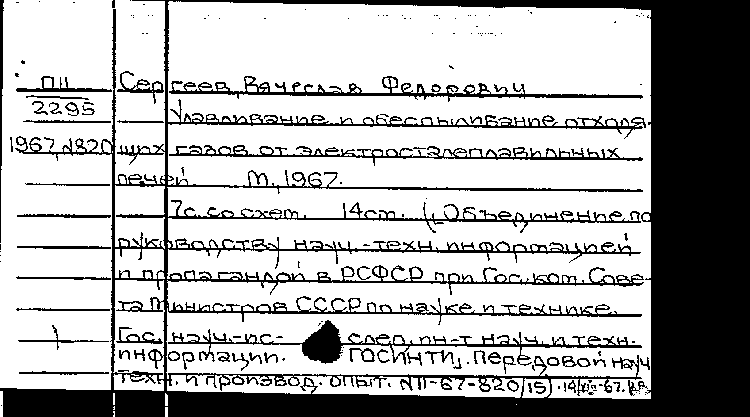 ПII Сергеев, Вячеслав Федорович
2295 Улавливание и обеспыливание отходя-
1967, №820 щих газов от электросталеплавильных
печей. М., 1967.
7с. со схем. 14см. (Объединение по
руководству науч.-техн. информацией
и пропагандой в РСФСР при Гос. ком. Сове-
та Министров СССР по науке и технике.
1 Гос. науч.-ис- след. ин-т науч. и техн.
информации. ГОСИНТИ). Передовой науч.
техн. и производ. опыт. №11-67-820/15).